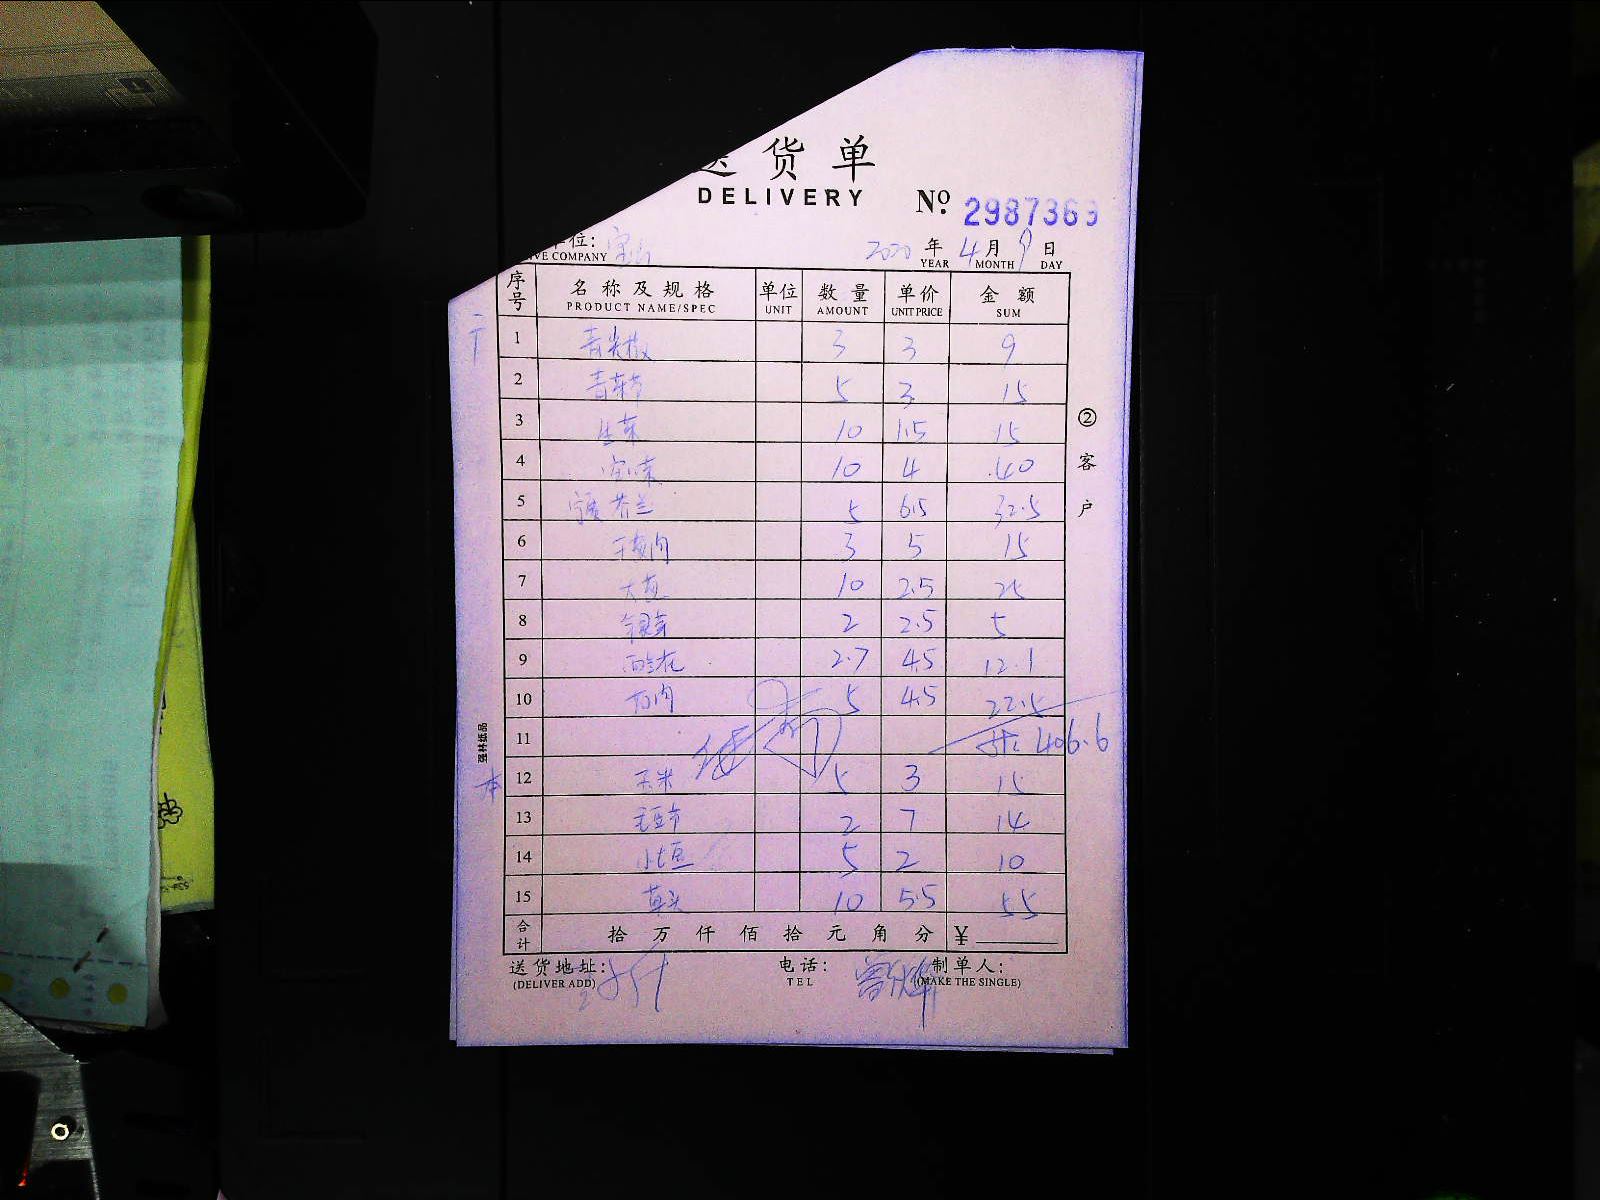 送货单
DELIVERY
№ 2987369
单位: 宝山
2020 年 4 月 9 日
IVE COMPANY YEAR MONTH DAY
序号 名称及规格 单位 数量 单价 金额
PRODUCT NAME/SPEC UNIT AMOUNT UNIT PRICE SUM
1 青尖椒 3 3 9
2 青菜节 5 3 15
3 生菜 10 1.5 15
4 10 4 40
5 芥兰 5 6.5 32.5
6 3 5 15
7 10 2.5 25
8 银芽 2 2.5 5
9 西兰花 2.7 4.5 12.1
10 方肉 5 4.5 22.5
11 406.6
12 玉米 5 3 15
13 毛豆节 2 7 14
14 小土豆 5 2 10
15 草头 10 5.5 55
合计 拾 万 仟 佰 拾 元 角 分 ¥
送货地址: 电话: 制单人:
(DELIVER ADD) TEL (MAKE THE SINGLE)
② 客户
强林纸品